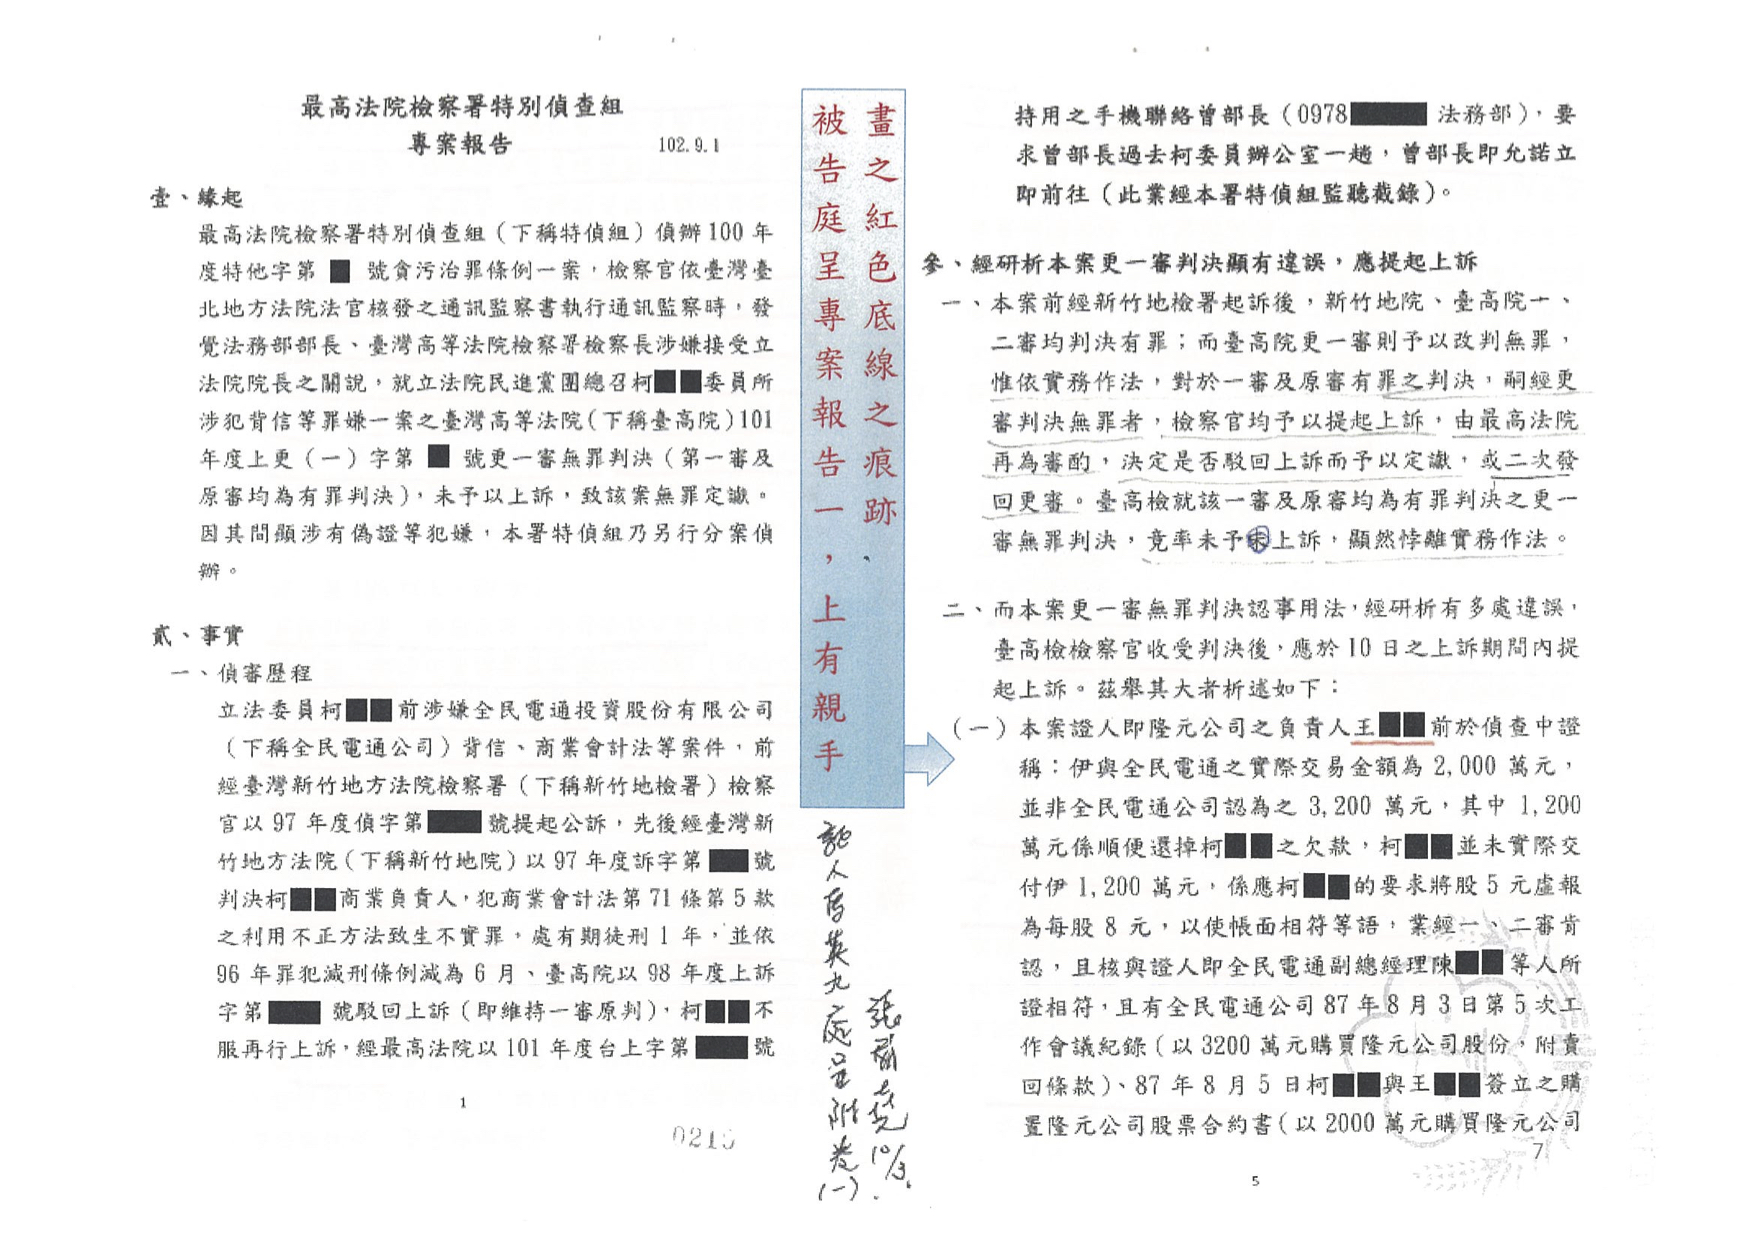 最高法院檢察署特別偵查組
專案報告 102.9.1
壹、緣起
最高法院檢察署特別偵查組（下稱特偵組）偵辦100年
度特他字第 號貪污治罪條例一案，檢察官依臺灣臺
北地方法院法官核發之通訊監察書執行通訊監察時，發
覺法務部部長、臺灣高等法院檢察署檢察長涉嫌接受立
法院院長之關說，就立法院民進黨團總召柯 委員所
涉犯背信等罪嫌一案之臺灣高等法院（下稱臺高院）101
年度上更（一）字第 號更一審無罪判決（第一審及
原審均為有罪判決），未予以上訴，致該案無罪定讞。
因其間顯涉有偽證等犯嫌，本署特偵組乃另行分案偵
辦。
貳、事實
一、偵審歷程
立法委員柯 前涉嫌全民電通投資股份有限公司
（下稱全民電通公司）背信、商業會計法等案件，前
經臺灣新竹地方法院檢察署（下稱新竹地檢署）檢察
官以97年度偵字第 號提起公訴，先後經臺灣新
竹地方法院（下稱新竹地院）以97年度訴字第 號
判決柯 商業負責人，犯商業會計法第71條第5款
之利用不正方法致生不實罪，處有期徒刑1年，並依
96年罪犯減刑條例減為6月、臺高院以98年度上訴
字第 號駁回上訴（即維持一審原判），柯 不
服再行上訴，經最高法院以101年度台上字第 號
1
0215
畫之紅色底線之痕跡、
被告庭呈專案報告一，上有親手
證人馬英九庭呈附卷(一)
10/3.
持用之手機聯絡曾部長（0978 法務部），要
求曾部長過去柯委員辦公室一趟，曾部長即允諾立
即前往（此業經本署特偵組監聽截錄）。
參、經研析本案更一審判決顯有違誤，應提起上訴
一、本案前經新竹地檢署起訴後，新竹地院、臺高院一、
二審均判決有罪；而臺高院更一審則予以改判無罪，
惟依實務作法，對於一審及原審有罪之判決，嗣經更
審判決無罪者，檢察官均予以提起上訴，由最高法院
再為審酌，決定是否駁回上訴而予以定讞，或二次發
回更審。臺高檢就該一審及原審均為有罪判決之更一
審無罪判決，竟率未予未上訴，顯然悖離實務作法。
二、而本案更一審無罪判決認事用法，經研析有多處違誤，
臺高檢檢察官收受判決後，應於10日之上訴期間內提
起上訴。茲舉其大者析述如下：
（一）本案證人即隆元公司之負責人王 前於偵查中證
稱：伊與全民電通之實際交易金額為2,000萬元，
並非全民電通公司認為之3,200萬元，其中1,200
萬元係順便還掉柯 之欠款，柯 並未實際交
付伊1,200萬元，係應柯 的要求將股5元虛報
為每股8元，以使帳面相符等語，業經一、二審肯
認，且核與證人即全民電通副總經理陳 等人所
證相符，且有全民電通公司87年8月3日第5次工
作會議紀錄（以3200萬元購買隆元公司股份，附賣
回條款）、87年8月5日柯 與王 簽立之購
置隆元公司股票合約書（以2000萬元購買隆元公司
7
5